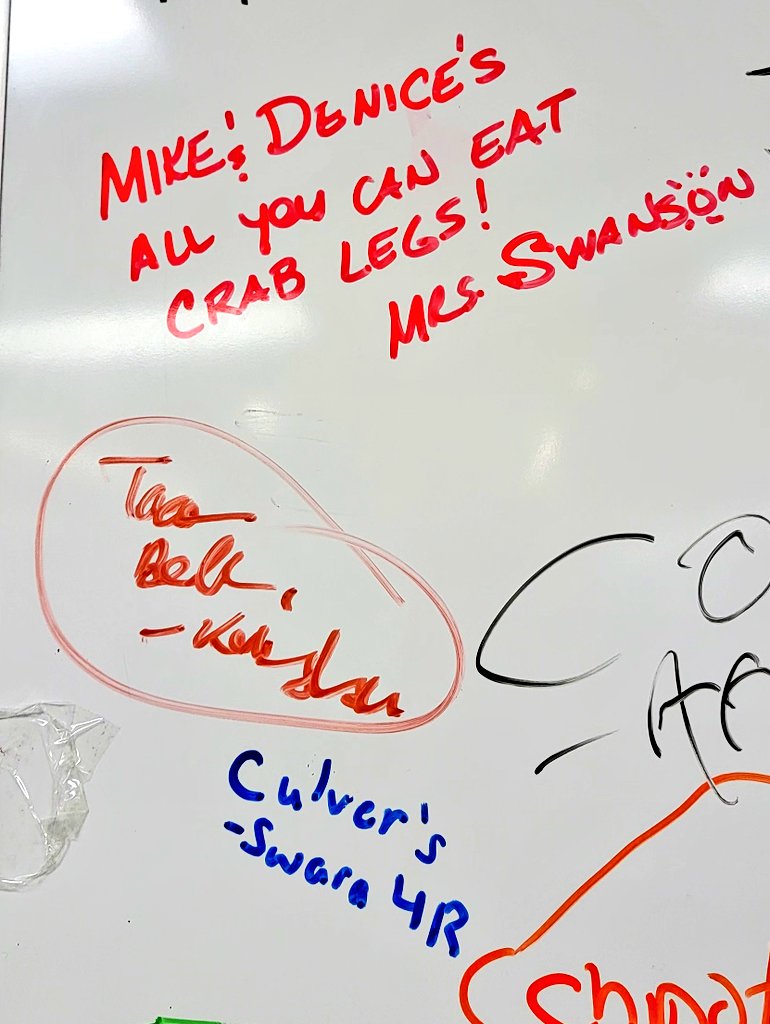 MIKE & DENICE'S
ALL you CAN EAT
CRAB LEGS!
MRS. SWANSON
Taco
Bell
Culver's
-Swara 4R